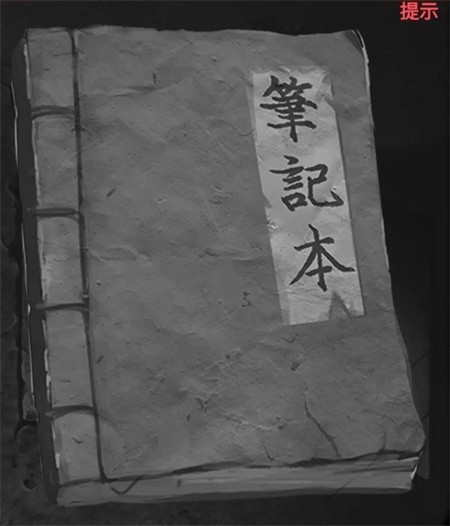 提示
筆記本